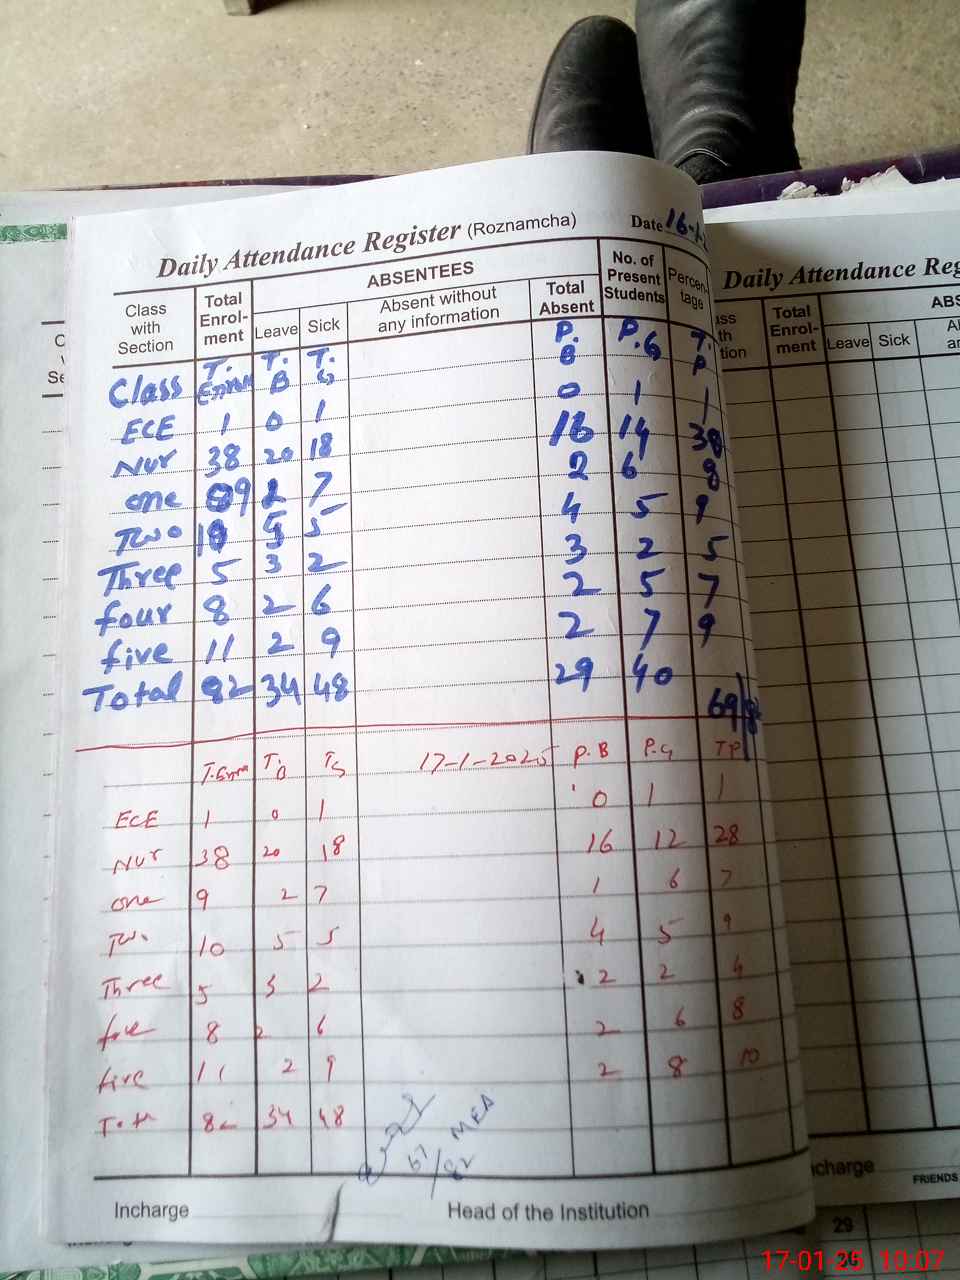 Daily Attendance Register (Roznamcha) Date 16-1-
Class with Section Total Enrol-ment ABSENTEES Leave Sick Absent without any information Total Absent No. of Present Students Percen-tage
Class T. T. B T. G P. B P.G T. P
ECE 1 0 1 0 1 1
Nur 38 20 18 14 38
one 9 2 7 2 6 8
Two 5 5 4 5 9
Three 5 3 2 3 2 5
four 8 2 6 2 5 7
five 11 2 9 2 7 9
Total 82 34 48 29 40 69/82
T.B T.G 17-1-2025 P.B P.G TP
ECE 1 0 1 0 1 1
Nur 38 20 18 16 12 28
one 9 2 7 1 6 7
Two 10 5 5 4 5 9
Three 5 3 2 2 2 4
four 8 2 6 2 6 8
five 11 2 9 2 8 10
Tot 82 34 48
67/82 MEA
Incharge Head of the Institution
Daily Attendance Reg
Total Enrol-ment Leave Sick
ncharge
FRIENDS
29
17-01-25 10:07